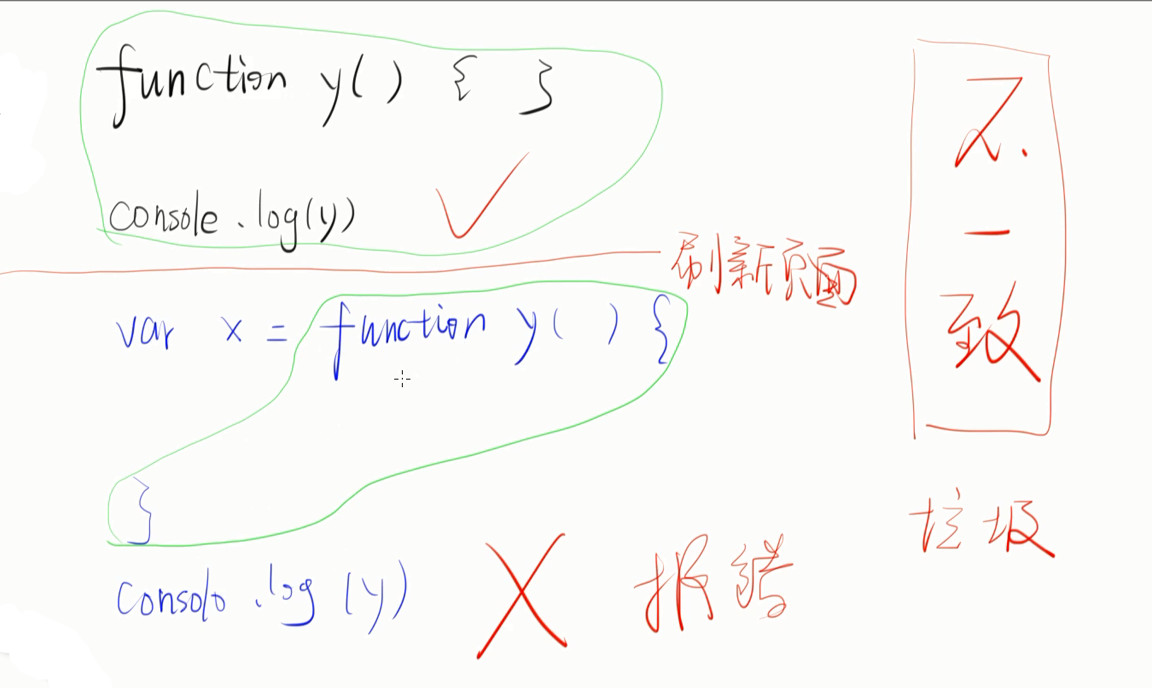 function y() { }
console.log(y)
刷新页面
var x = function y( ) {
}
consolo.log(y)
报错
不.
一
致
垃圾